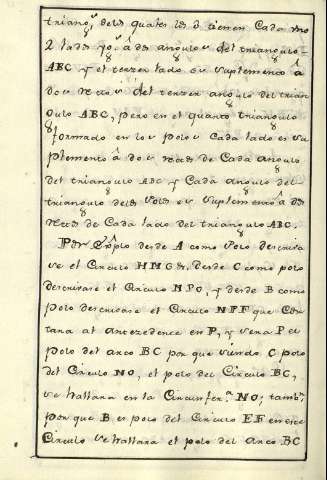 triang.^s delos quales los 3 tienen Cada uno
2 lados yg.^s â dos angulos del triangulo
ABC y el tercer lado es suplemento â
dos rectos del tercer angulo del trian
gulo ABC, pero en el quarto triangulo
formado en los polos Cada lado es su
plemento â dos rectos de Cada angulo
del triangulo ABC y Cada angulo del
triangulo delos Polos es suplemento â dos
rectos de Cada lado del triangulo ABC.
Por Explo desde A como Polo descriva
se el Circulo HMG. desde C como polo
descrivase el Circulo NPO, y desde B como
polo descrivase el Circulo NPF que Cor
tara al antecedente en P, y sera P el
polo del arco BC por que siendo C polo
del Circulo NO, el polo del Circulo BC,
se hallara en la Circunfer.^a NO; tamb.^n
por que B es polo del Circulo EF en este
Circulo se hallara el polo del arco BC